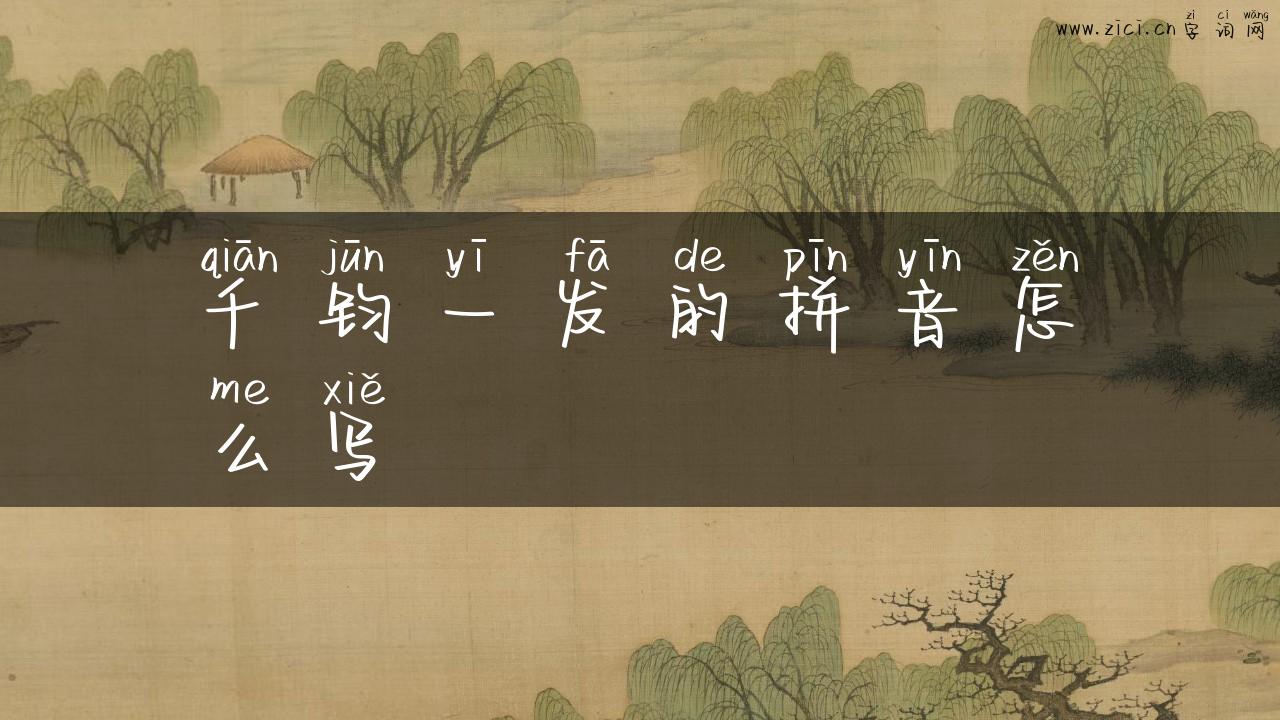 zì cí wǎng
www.zici.cn 字词网
qiān jūn yī fā de pīn yīn zěn
千钧一发的拼音怎
me xiě
么写